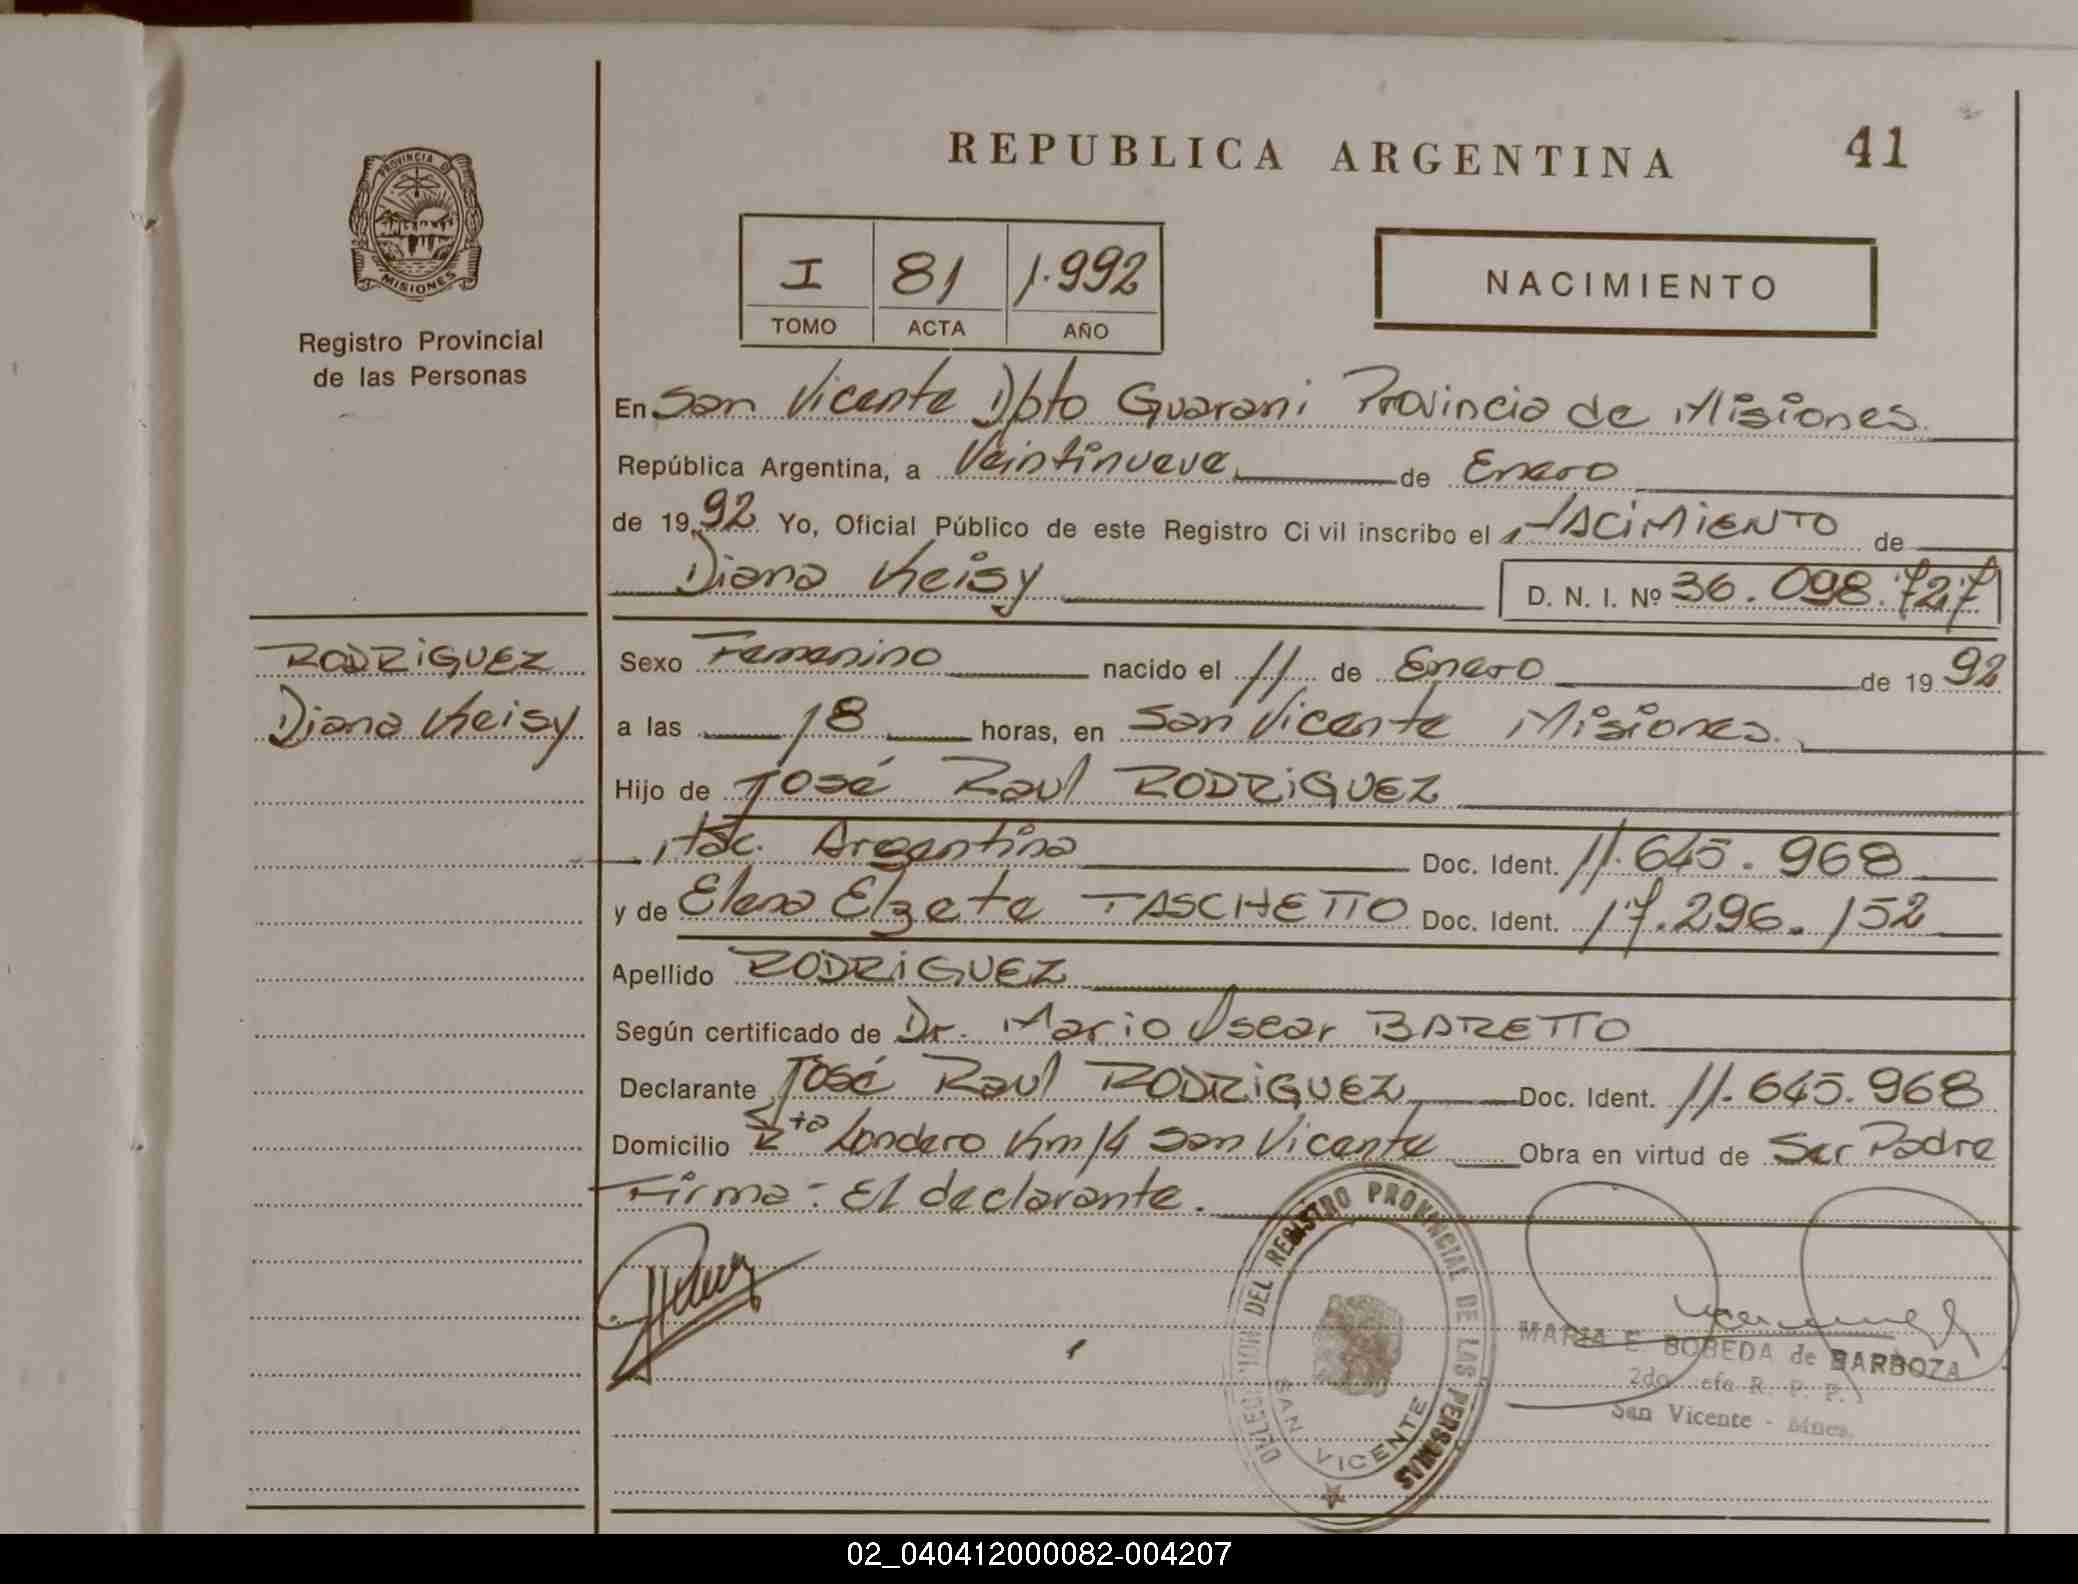 REPUBLICA ARGENTINA
41
PROVINCIA DE
MISIONES
Registro Provincial
de las Personas
I 81 1.992
TOMO ACTA AÑO
NACIMIENTO
En San Vicente Dpto Guarani Provincia de Misiones
República Argentina, a Veintinueve de Enero
de 1992 Yo, Oficial Público de este Registro Civil inscribo el NACIMIENTO de
Diana Keisy D. N. I. Nº 36.098.727
RODRIGUEZ
Diana Keisy
Sexo Femenino nacido el 11 de Enero de 1992
a las 18 horas, en San Vicente Misiones.
Hijo de José Raul RODRIGUEZ
Nac. Argentina Doc. Ident. 11.645.968
y de Elena Elzete TASCHETTO Doc. Ident. 17.296.152
Apellido RODRIGUEZ
Según certificado de Dr. Mario Oscar BARETTO
Declarante José Raul RODRIGUEZ Doc. Ident. 11.645.968
Domicilio Londero Km 14 San Vicente Obra en virtud de Ser Padre
Firma: El declarante.
DELEGACION DEL REGISTRO PROVINCIAL DE LAS PERSONAS
SAN VICENTE
MARIA E. BOBEDA de BARBOZA
2do. Jefe R. P. P.
San Vicente - Mnes.
02_040412000082-004207